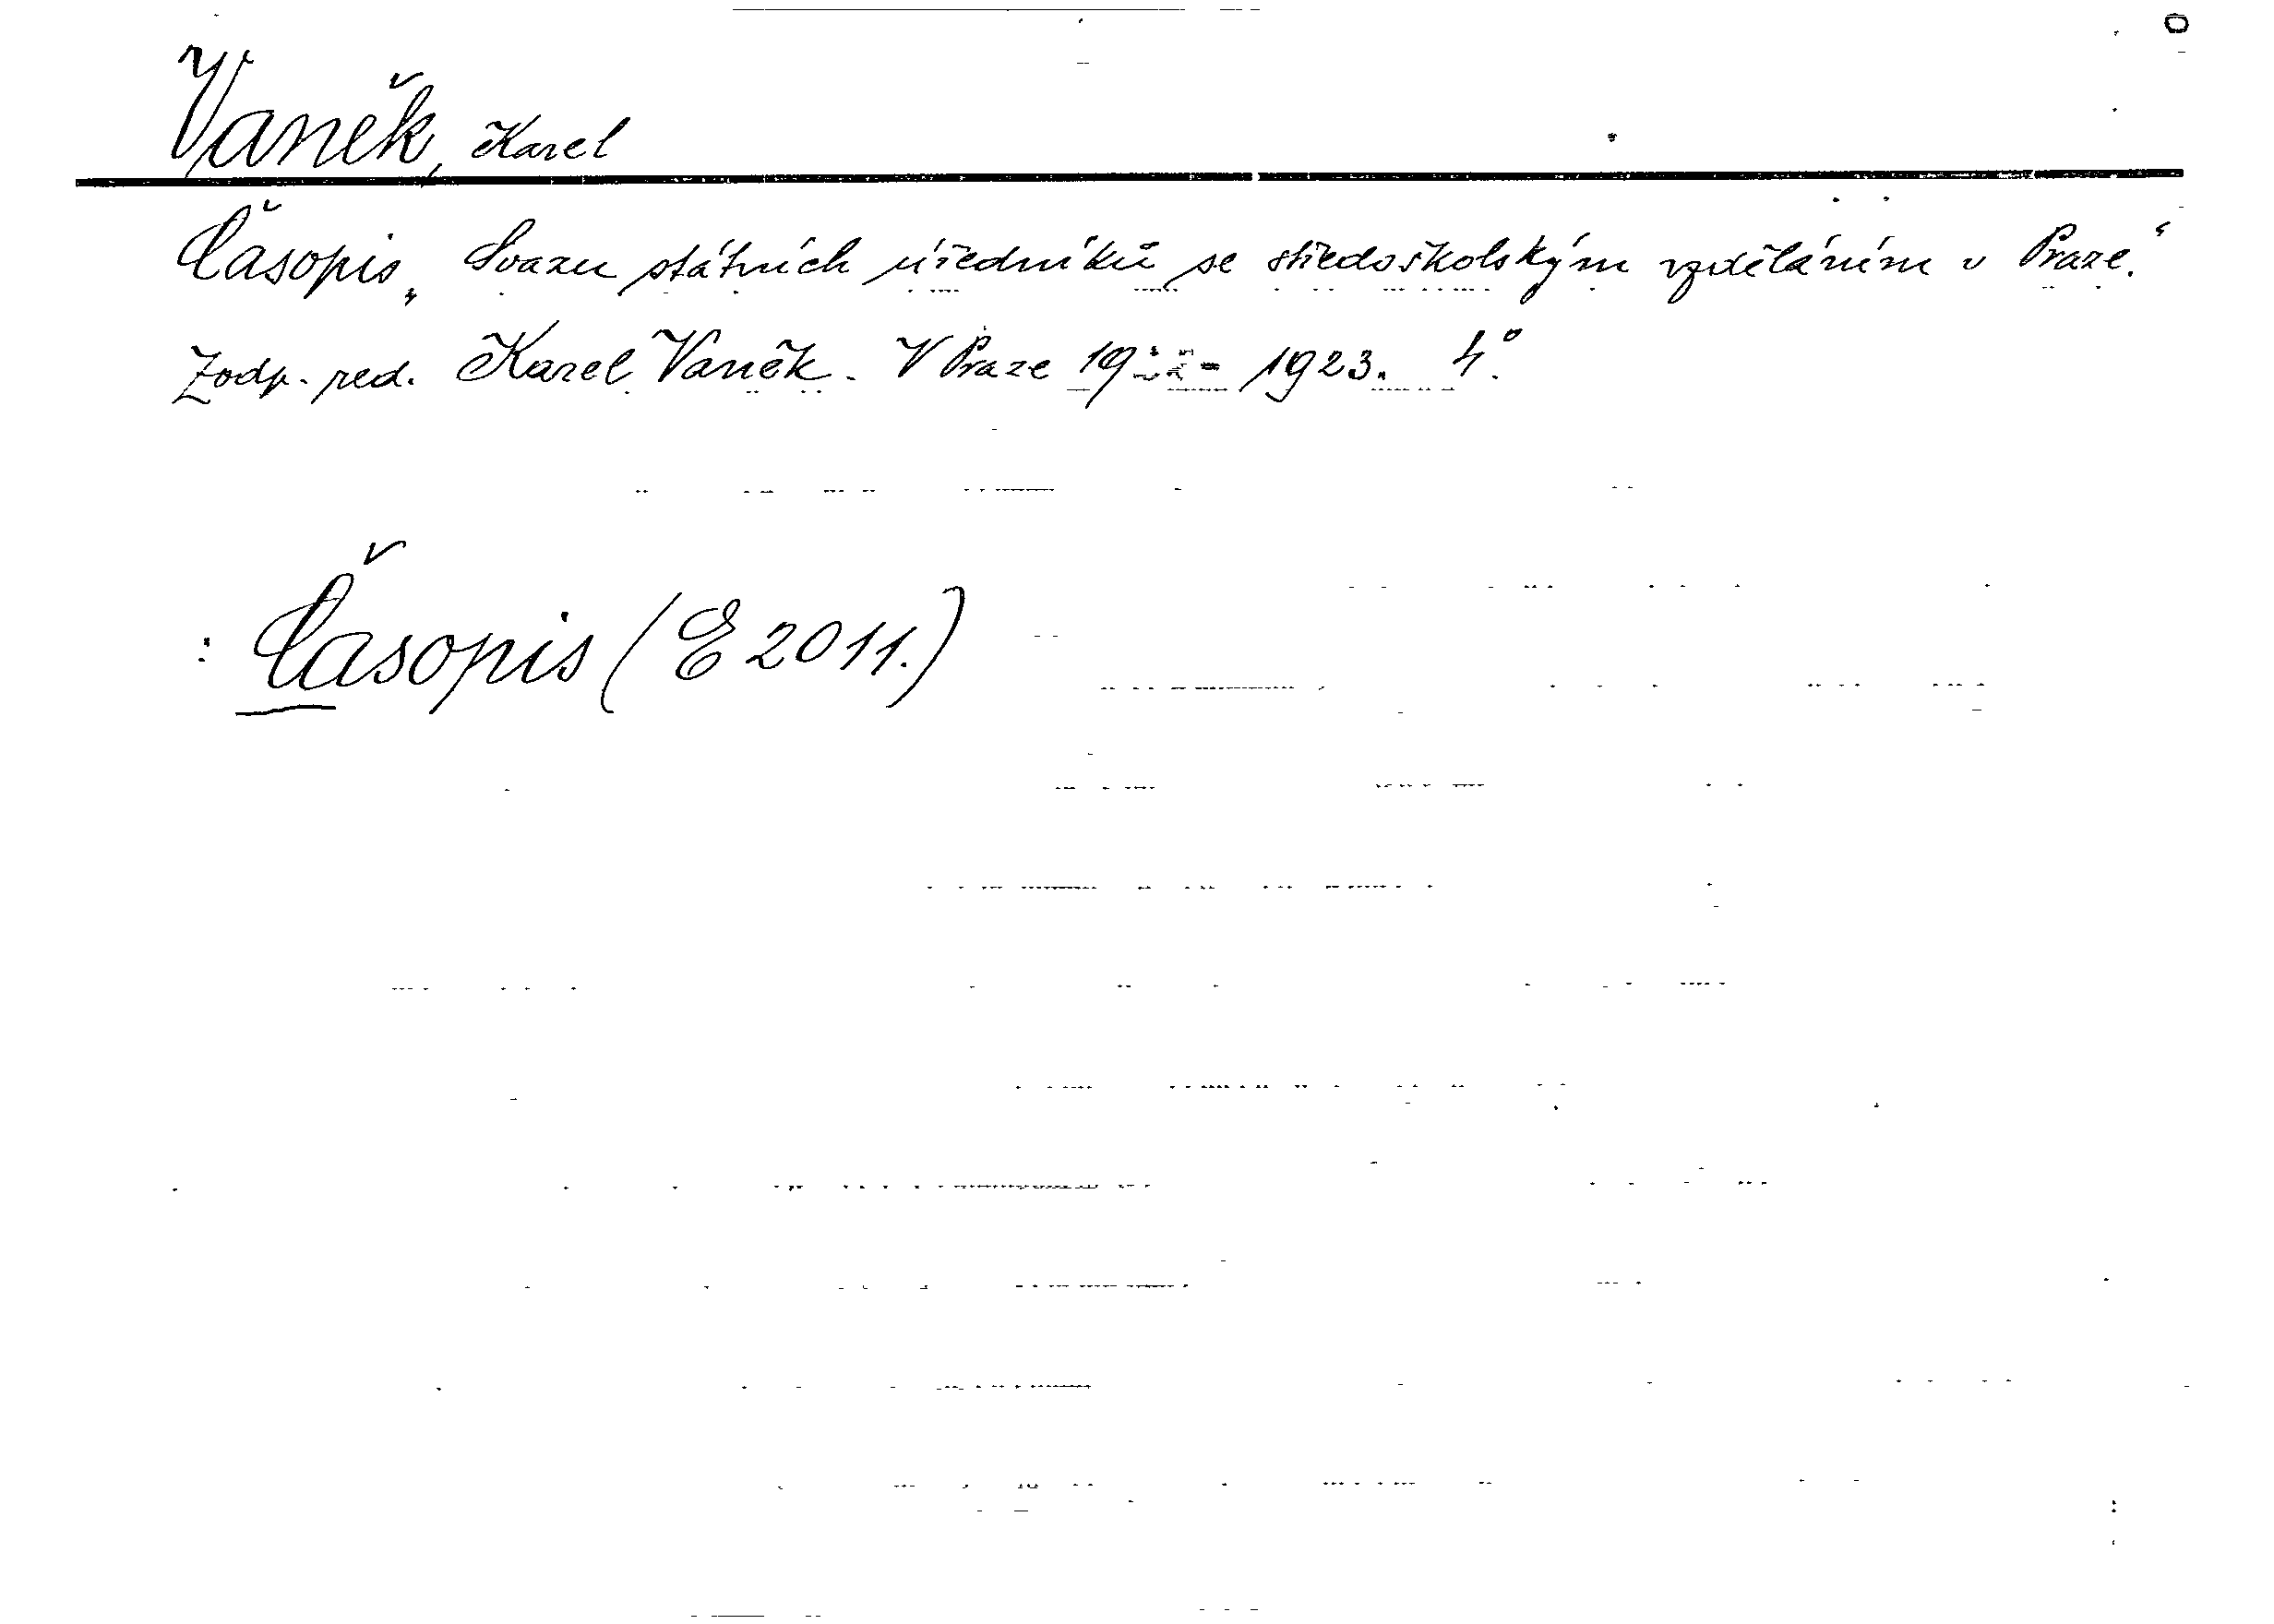 Vaněk, Karel
Časopis „Svazu státních úředníků se středoškolským vzděláním v Praze.“
Zodp. red. Karel Vaněk. V Praze 19 - 1923. 4°.
: Časopis (E 2011.)